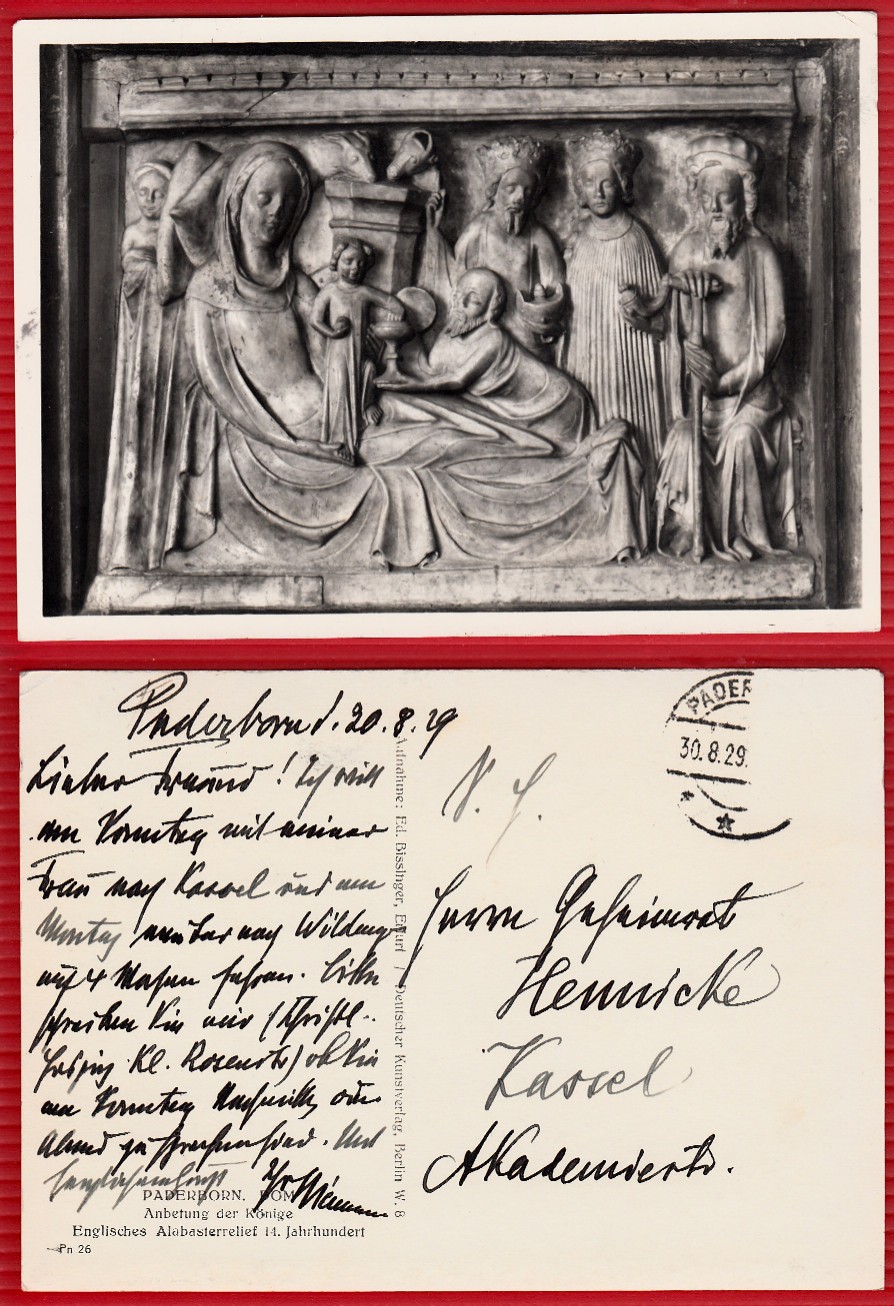 Paderborn d. 30.8.29
Lieber Freund! Ich will
am Sonntag mit meiner
Frau nach Kassel und am
Montag nach Wildungen
auf 4 Wochen fahren. Bitte
schreiben Sie mir (Christl.
Hospiz Kl. Rosenstr.) ob Sie
am Sonntag Nachmittg oder
Abend zu sprechen sind.
Ihr
PADERBORN, DOM
Anbetung der Könige
Englisches Alabasterrelief 14. Jahrhundert
Pn 26
Aufnahme: Ed. Bissinger, Erfurt / Deutscher Kunstverlag, Berlin W. 8
PADER
30.8.29.
S. H.
Herrn Geheimrat
Hennicke
Kassel
Akademiestr.